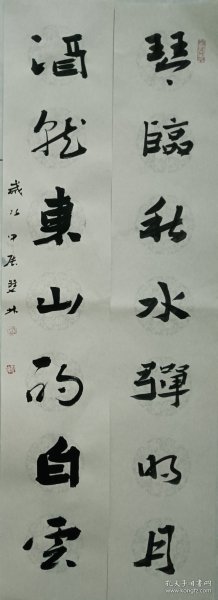 琴臨秋水彈明月
酒就東山酌白雲
歲次甲辰
孔夫子旧书网
www.kongfz.com